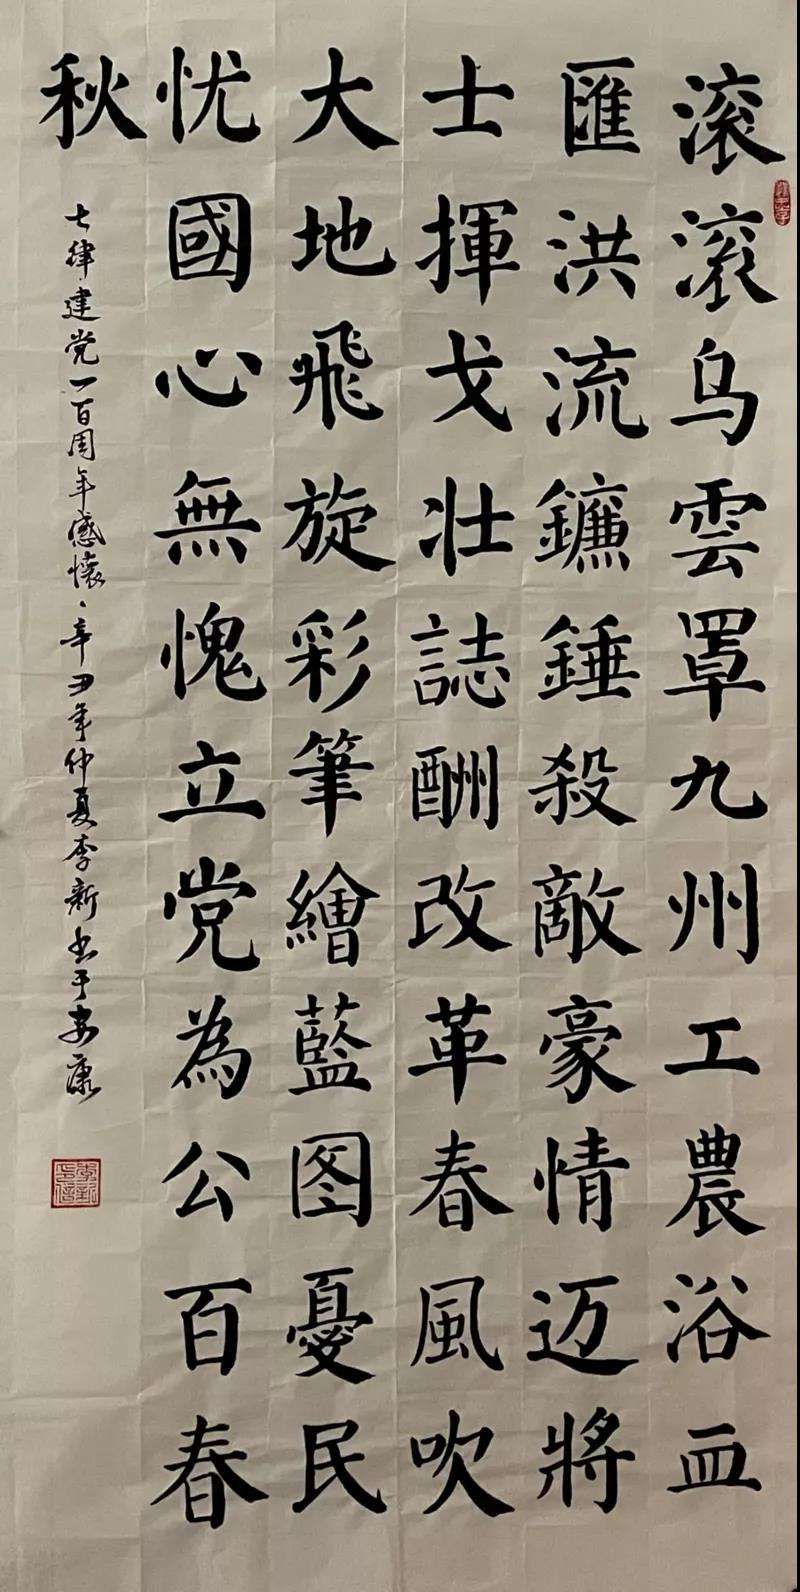 滚滚乌雲罩九州工農浴血
匯洪流鐮錘殺敵豪情迈將
士揮戈壮誌酬改革春風吹
大地飛旋彩筆繪藍图憂民
忧國心無愧立党為公百春
秋
七律·建党一百周年感懷、辛丑年仲夏李新书于安康